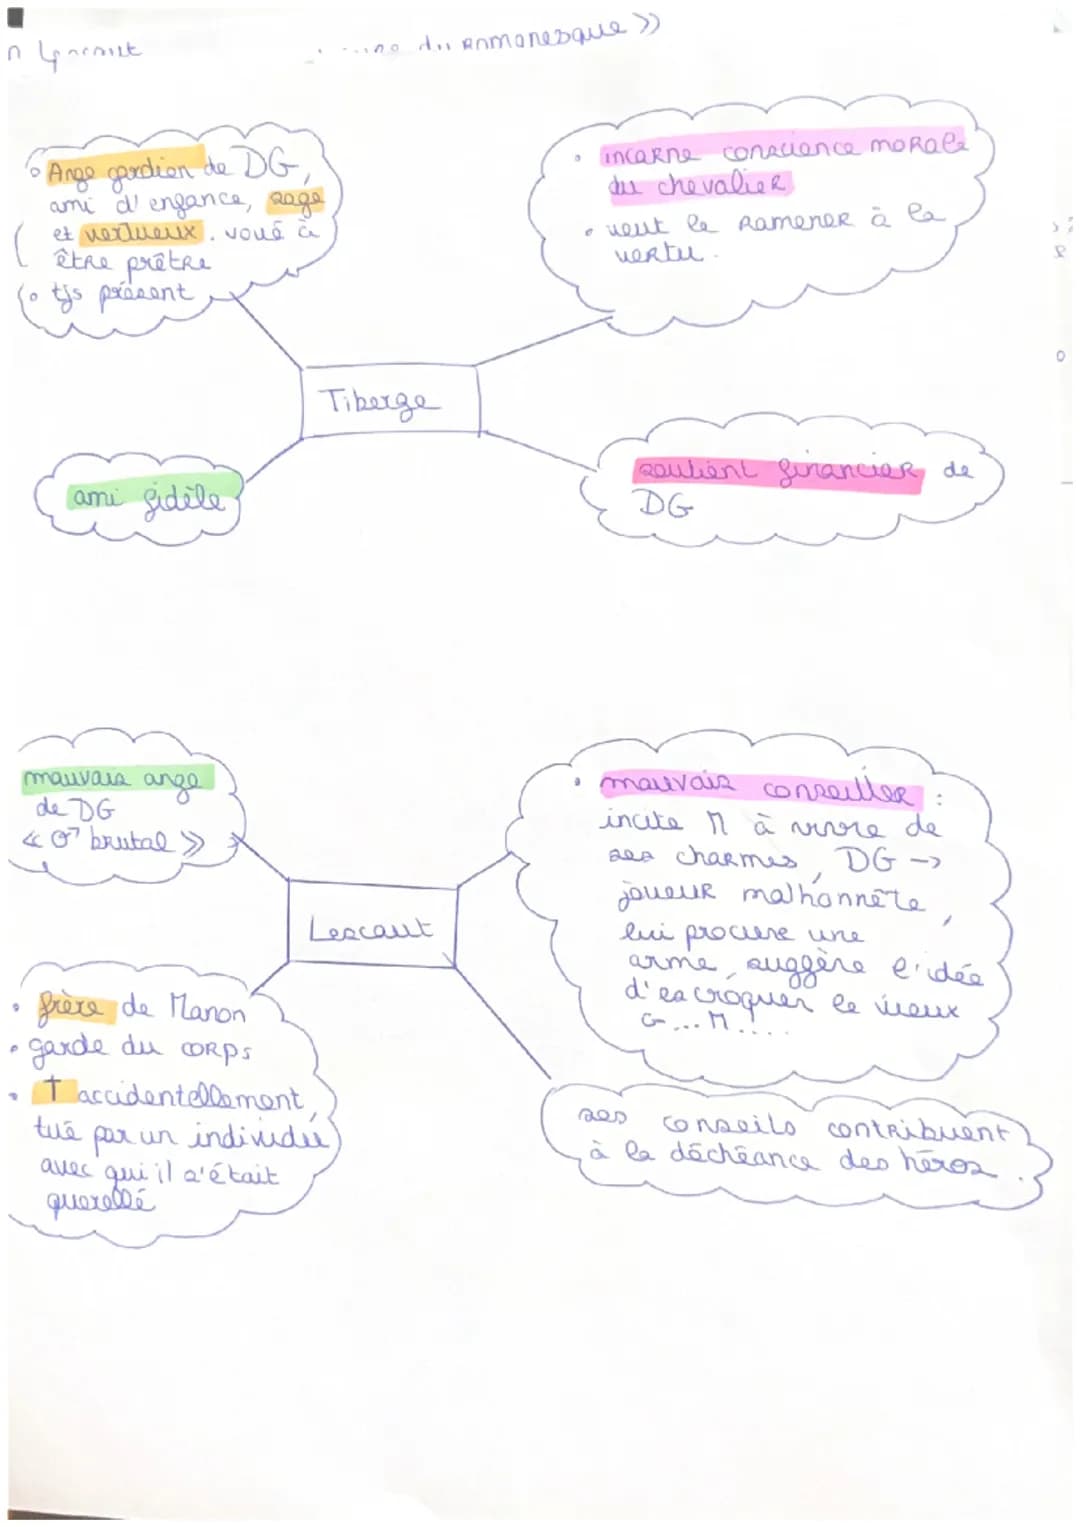 du romanesque >>
• Ange gardien de DG,
ami d'enfance, sage
et vertueux. voué à
être prêtre
• tjs présent
• incarne conscience morale
du chevalier
• veut le ramener à la
vertu.
Tiberge
ami fidèle
soutient financier de
DG
mauvais ange
de DG
<< ♂ brutal >>
• mauvais conseiller :
incite M à vivre de
ses charmes, DG ->
joueur malhonnête,
lui procure une
arme, suggère l'idée
d'escroquer le vieux
G... M....
Lescaut
• frère de Manon
• garde du corps
• † accidentellement,
tué par un individu
avec qui il s'était
querellé
ses conseils contribuent
à la déchéance des héros.